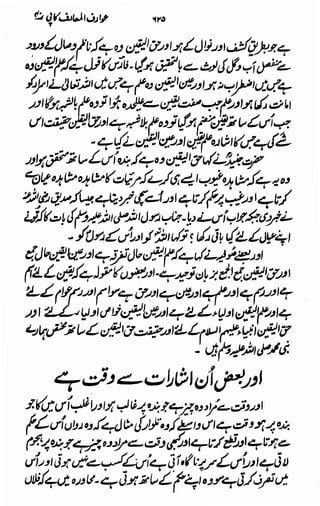 عوارف المعارف کاپی ۳۰ ۶۲۵
ہے جو بطریق کشف اور نوال کے ہو اور حق الیقین وہ ہے کہ ناظم وصال کے ورود
سے منفصل آب و گل کی لوث سے بالتحقیق ہو گیا۔ فارس کا قول ہے کہ علم الیقین وہ
ہے جس میں اضطراب نہ ہو اور عین الیقین وہ علم ہے جس میں اللہ تعالیٰ نے اسرار کو
امانت رکھا ہو اور علم جب صفت یقین سے علیحدہ ہوا تو وہ علم بالشبہ ہو گا اور
جب اُس کے ساتھ یقین منضم ہو گیا تو وہ علم بلا شبہ ہے اور حق الیقین حقیقت اس
شے کی ہے جس کا اشارہ علم یقین اور عین الیقین نے کیا ہے۔
حضرت جنیدؒ نے کہا حق الیقین وہ ہے کہ بندہ اُس کے ساتھ متحقق ہو اور
وہ یہ ہے کہ مشاہدہ غیوب ایسے ہی کرے کہ مرئیات کا مشاہدہ مشاہدہ عیان سے
کرتا ہے اور غیب پر حکم کرتا ہے اور اُسے سچی خبر دیتا ہے جیسا کہ صدیق رضی اللہ عنہ
نے خبر دی جبکہ جواب اُس نے دیا۔ جناب رسول اللہ صلی اللہ علیہ وسلم کی بات کا کہ تو نے
اپنے عیال کے لئے کیا باقی رکھا؟ تو کہا اللہ کو اور اُس کے رسول کو۔
اور بعض صوفیہ نے کہا ہے کہ علم الیقین حال تفرقہ ہے اور عین الیقین حال جمع
اور حق الیقین جمع الجمع بزبان توحید ہے۔ اور بعضوں کا مقولہ ہے کہ یقین کے لئے اسم
ہے اور رسم ہے اور علم ہے اور عین ہے اور حق ہے سو اسم اور رسم عوام کے لئے
ہے اور علم الیقین اولیاء کے لئے ہے اور عین الیقین خواص اولیاء کے لئے اور
حق الیقین انبیاء علیہم السلام کے لئے اور حقیقت حق الیقین کے ساتھ مختص ہمارے
نبی محمد صلی اللہ علیہ وسلم ہیں۔
اور بعض اُن اشارات سے وقت ہے
اور وقت سے مراد وہ چیز ہے جو بندہ پر غالب ہو اور اغلب اُس میں کا جو
بندہ پر ہو وقت ہے اس واسطے کہ وہ تلوار کی مثال ہے کہ وہ رواں اُس کے حکم
سے ہوتا ہے اور قطع کرتا ہے اور کبھی وقت سے مراد وہ چیز ہے جو بندہ پر ہجوم
لاتی ہے اور اُس کے سر پر ناگاہ آتی ہے اُس کے کسب سے نہیں ہوتی اور اُس
میں تصرف کرتی ہے سو وہ اپنے حکم کے ساتھ ہوتی ہے۔ محاورہ میں ہے کہ فلاں